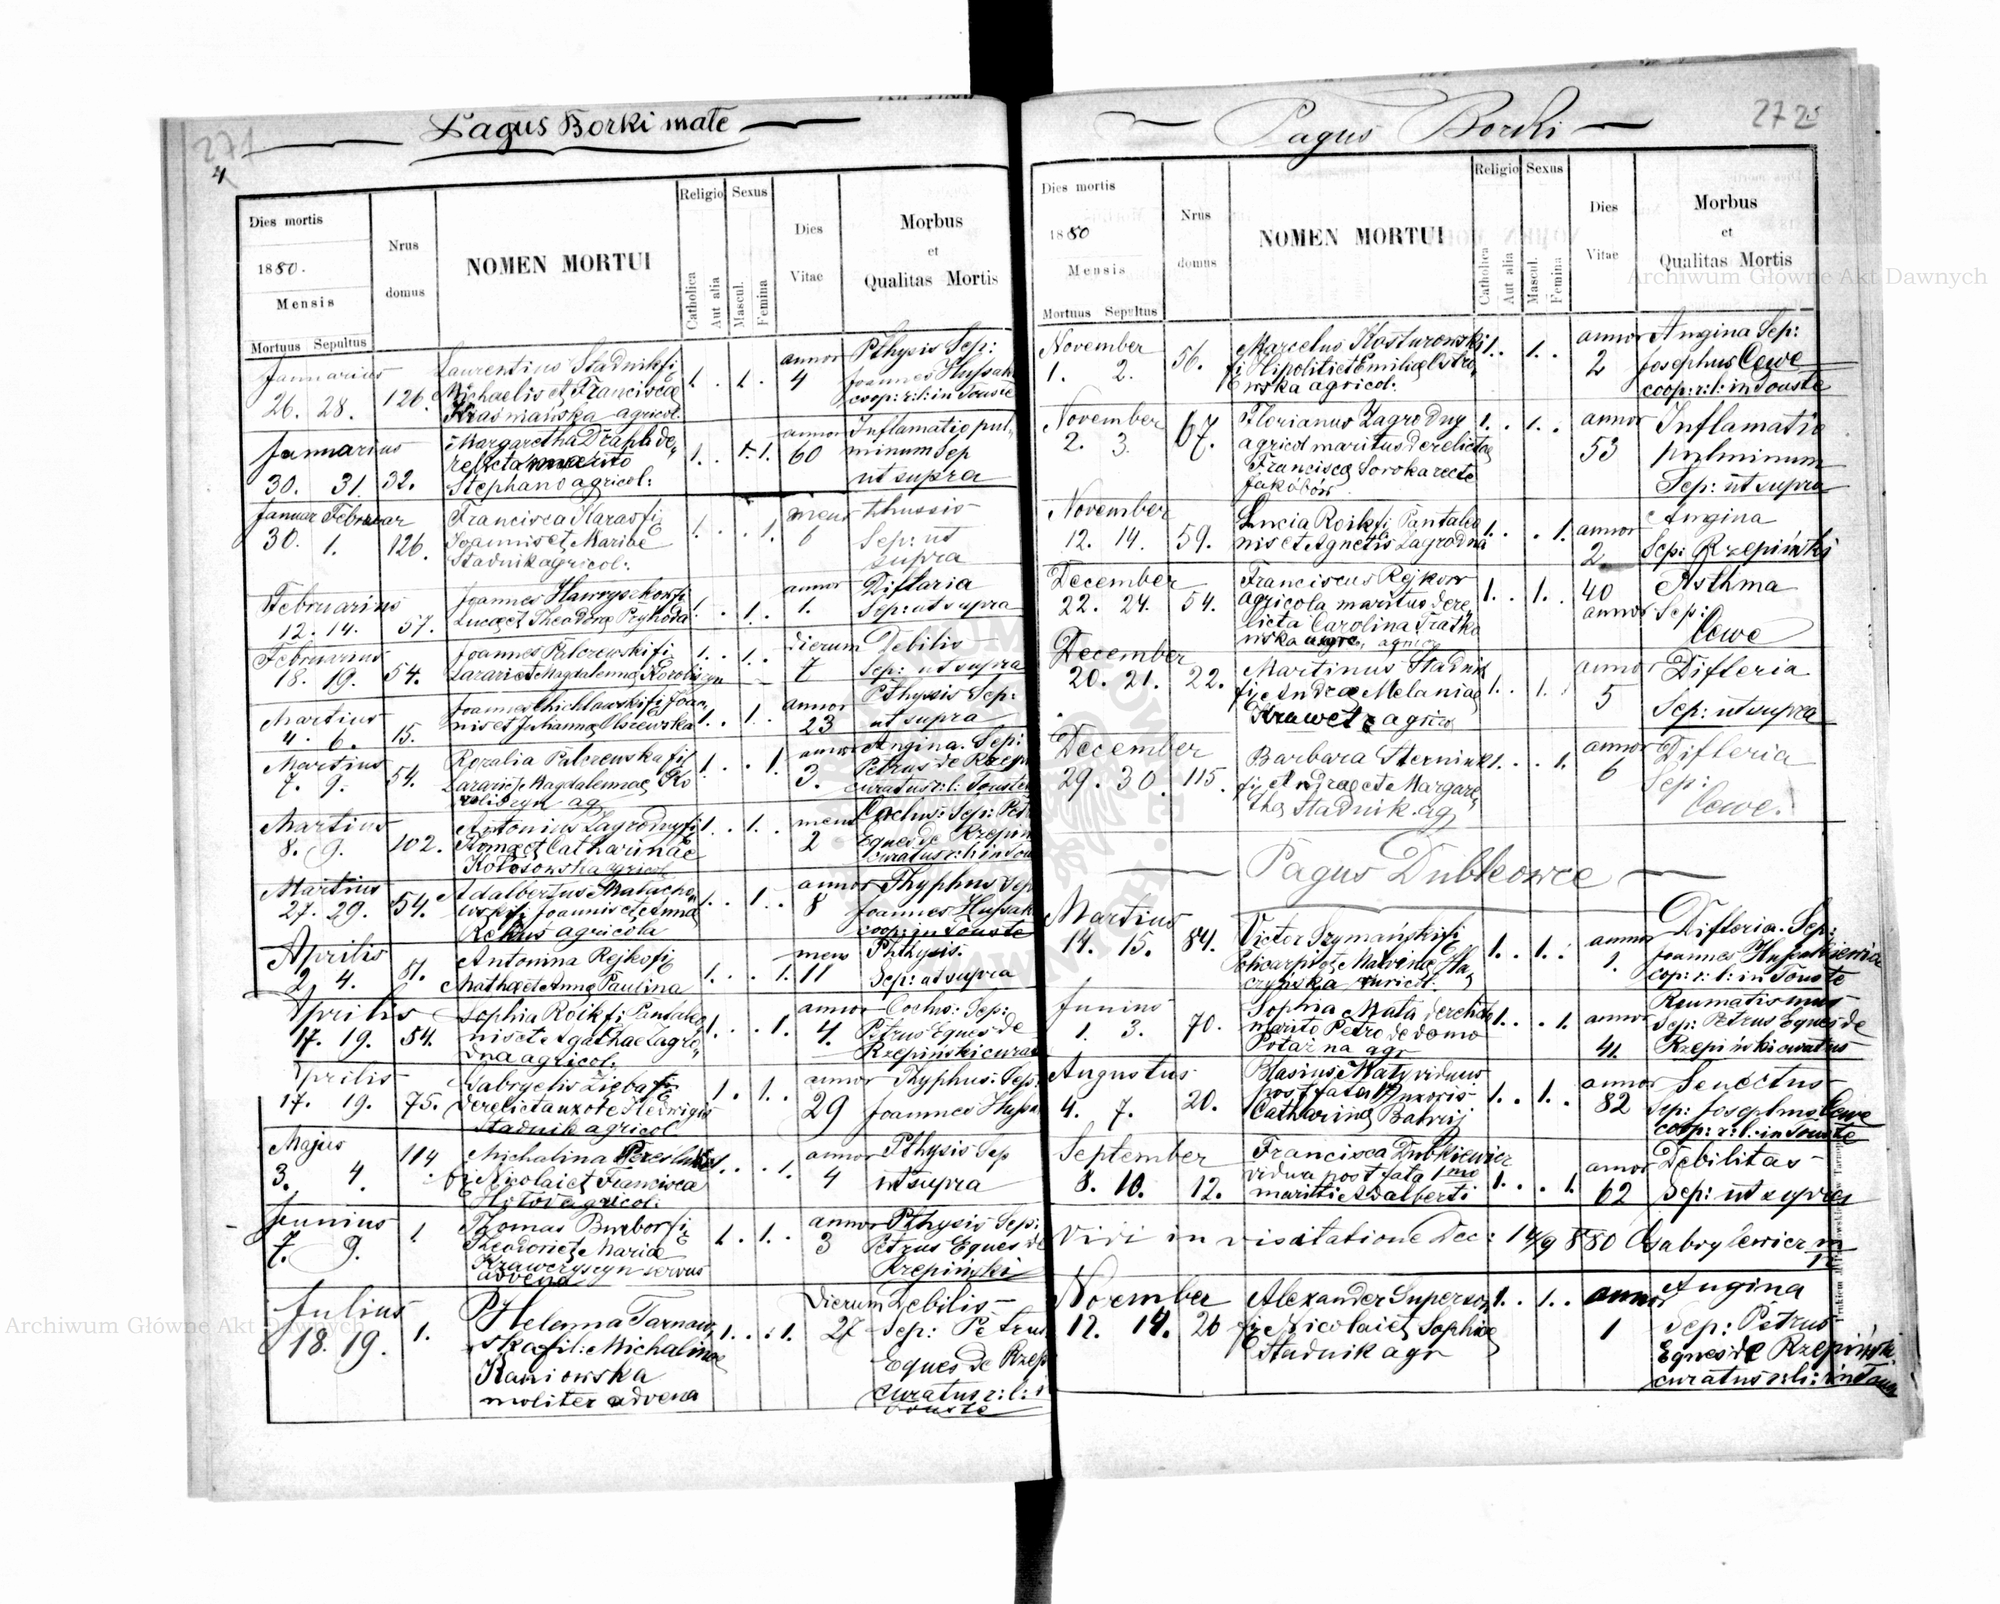 271
4
Pagus Borki małe
Dies mortis
1880.
Mensis
Mortuus Sepultus
Nrus
domus
NOMEN MORTUI
Religio
Catholica
Aut alia
Sexus
Mascul.
Femina
Dies
Vitae
Morbus
et
Qualitas Mortis
Januarius
26. 28. 126.
Laurentius Stadnik fi
Michaelis et Francisca
agricol.
1. . 1. .
annor
4
Pthysis Sep:
Joannes Hussak
coop: r: l: in Touste
Januarius
30. 31. 32.
Margaretha
relicta marito
Stephano agricol:
1. . 1.
annor
60
Inflamatio pul
minum Sep
ut supra
Januar Februar
30. 1. 126.
Francisca Karas fi
Joannis et Mariae
Stadnik agricol:
1. . . 1.
mens
6
thussis
Sep: ut
supra
Februarius
12. 14. 57.
Joannes
Lucae et Theodora Pryhoda
1. . 1. .
annor
1.
Difteria
Sep: ut supra
Februarius
18. 19. 54.
Joannes Palczewski fi
Lazari et Magdalenna
1. . 1. .
dierum
7
Debilis
Sep: ut supra
Martius
4. 6. 15.
Joannes fi Joan
nis et Julianna Olszewska
1. . 1.
annor
23
Pthyssis Sep:
ut supra
Martius
7. 9. 54.
Rozalia Palczewska fil
Lazari et Magdalennae Ko
ag
1. . . 1.
annor
3.
Angina. Sep:
Petrus de Rzep
curatus r: l: Touste
Martius
8. 9. 102.
Antonius Zagrodny fi
Thomae et Catharinae
Kołosowska agricol
1. . 1. .
mens
2
Sep: Pet
Eques de Rzepin
curatus r: l: in Tou
Martius
27. 29. 54.
Adalbertus Małacho
wski fi Joannis et Anna
agricola
1. . 1. .
annor
8
Thyphus Sep
Joannes Hussak
coop: in Touste
Aprilis
2. 4. 81.
Antonina Rejko fi
Mathaei et Anna Paulina
1. . . 1.
mens
11
Phthysis.
Sep: ut supra
Aprilis
17. 19. 54.
Sophia Roik fi Pantaleo
nis et Agathae Zagro
dna agricol:
1. . . 1.
annor
4.
Sep:
Petrus Eques de
Rzepiński cura
Aprilis
17. 19. 75.
Gabryelis Zięba fi
derelicta uxore Hedvigis
Stadnik agricol
1. . 1. .
annor
29
Thyphus: Sep:
Joannes Hussa
Majus
3. 4. 114
Michalina
fi Nicolai et Francisca
agricol:
1. . . 1.
annor
4
Pthysis Sep
ut supra
Junius
7. 9. 1.
Thomas Burbor fi
Theodori et Maria
Krawczyszyn servus
advena
1. . 1. .
annor
3
Pthysis Sep:
Petrus Eques de
Rzepiński
Julius
18. 19. 1.
Helenna Tarnaw
ska fil: Michalinae
Kaniowska
moliter advena
1. . . 1.
Dierum
27
Debilis
Sep: Petrus
Eques de Rzep
curatus r: l: i
Touste
272
Pagus Borki
Dies mortis
1880
Mensis
Mortuus Sepultus
Nrus
domus
NOMEN MORTUI
Religio
Catholica
Aut alia
Sexus
Mascul.
Femina
Dies
Vitae
Morbus
et
Qualitas Mortis
November
1. 2. 56.
Marcelus Kosturowski
fi Hipoliti et Emilia Ostro
wska agricol.
1. . 1. .
annor
2
Angina Sep:
Josephus Cewe
coop: r: l: in Touste
November
2. 3. 67.
Florianus Zagrodny
agricol maritus derelicta
Francisca Soroka recte
Jakóbów
1. . 1. .
annor
53
Inflamatio
pulminum
Sep: ut supra
November
12. 14. 59.
Lucia Roik fi Pantaleo
nis et Agnetis Zagrodna
1. . . 1.
annor
2
Angina
Sep: Rzepiński
December
22. 24. 54.
Franciscus Rejkow
agricola maritus dere
licta Carolina Tratko
wska
1. . 1. .
40
annor
Asthma
Sep:
Cewe
December
20. 21. 22.
Martinus Stadnik
fi Andrae Melaniae
Krawetz agrico
1. . 1.
annor
5
Difteria
Sep: ut supra
December
29. 30. 115.
Barbara
fi Andrae et Margare
tha Stadnik ag
1. . . 1.
annor
6
Difteria
Sep:
Cewe.
Pagus Dubkowce
Martius
14. 15. 84.
Victor Szymański fi
Policarpi et Malvina Ha
czyńska
1. . 1. .
annor
1.
Difteria. Sep:
Joannes Hussakiewicz
cop: r: l: in Touste
Junius
1. 3. 70.
Sophia Mata derelicta
marito Petro de domo
Potażna agr
1. . . 1.
annor
41.
Reumatismus
Sep: Petrus Eques de
Rzepiński curatus
Augustus
4. 7. 20.
Blasius Maty viduus
post fata uxoris
Catharina Batrij
1. . 1. .
annor
82
Senectus
Sep: Josephus Cewe
coop: r: l: in Touste
September
8. 10. 12.
Francisca Dubkiewicz
vidua post fata 1mo
mariti Adalberti
1. . . 1.
annor
62
Debilitas
Sep: ut supra
Vidi in visitatione Dec: 14/9 880 Gabrylewicz m
November
12. 14. 26
Alexander Superson
fi Nicolai et Sophiae
Stadnik agr
1. . 1. .
annor
1
Angina
Sep: Petrus
Eques de Rzepiński
curatus r: l: in Touste
Archiwum Główne Akt Dawnych
Archiwum Główne Akt Dawnych